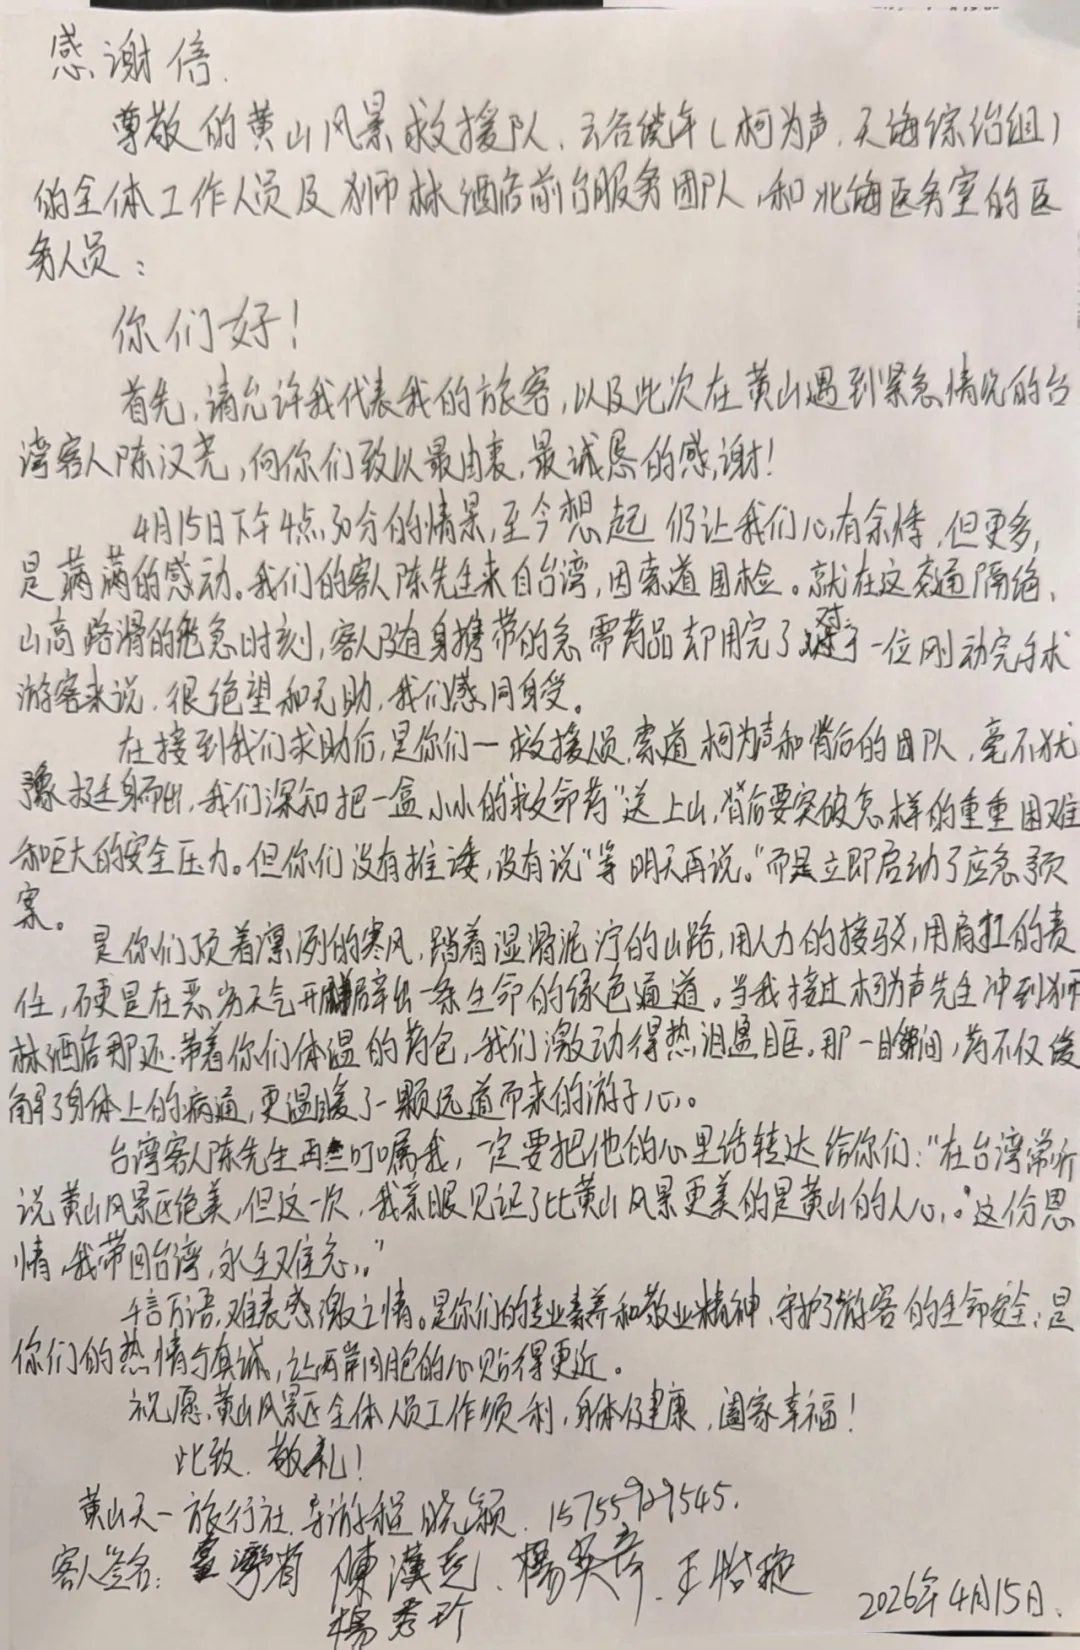 感谢信.
尊敬的黄山风景救援队、云谷缆车(柯为声、天海综治组)
的全体工作人员及狮林酒店前台服务团队,和北海医务室的医
务人员:
你们好!
首先,请允许我代表我的旅客,以及此次在黄山遇到紧急情况的台
湾客人陈汉尧,向你们致以最由衷、最诚恳的感谢!
4月15日下午4点30分的情景,至今想起仍让我们心有余悸,但更多,
是满满的感动。我们的客人陈先生来自台湾,因索道因检。就在这交通隔绝、
山高路滑的危急时刻,客人随身携带的急需药品却用完了,对于一位刚动完手术
游客来说,很绝望和无助,我们感同身受。
在接到我们求助后,是你们一救援人员、索道柯为声和背后的团队,毫不犹
豫挺身而出,我们深知把一盒小小的"救命药"送上山,背后要突破怎样的重重困难
和巨大的安全压力。但你们没有推诿,没有说"等明天再说。"而是立即启动了应急预
案。
是你们顶着凛冽的寒风,踏着湿滑泥泞的山路,用人力的接驳,用肩扛的责
任,硬是在恶劣天气开辟出一条生命的绿色通道。当我接过柯为声先生冲到狮
林酒店那还带着你们体温的药包,我们激动得热泪盈眶。那一瞬间,药不仅缓
解了身体上的病痛,更温暖了一颗远道而来的游子心。
台湾客人陈先生再三叮嘱我,一定要把他的心里话转达给你们:"在台湾常听
说黄山风景区绝美,但这一次,我亲眼见证了比黄山风景更美的是黄山的人心。这份恩
情,我带回台湾,永生难忘。"
千言万语,难表感激之情。是你们的专业素养和敬业精神,守护了游客的生命安全;是
你们的热情与真诚,让两岸同胞的心贴得更近。
祝愿黄山风景区全体人员工作顺利,身体健康,阖家幸福!
此致、敬礼!
黄山天一旅行社 导游程晓颖. 15755929545.
客人签名: 臺灣省 陳漢尧、楊英奇、王
楊秀珍
2026年4月15日.